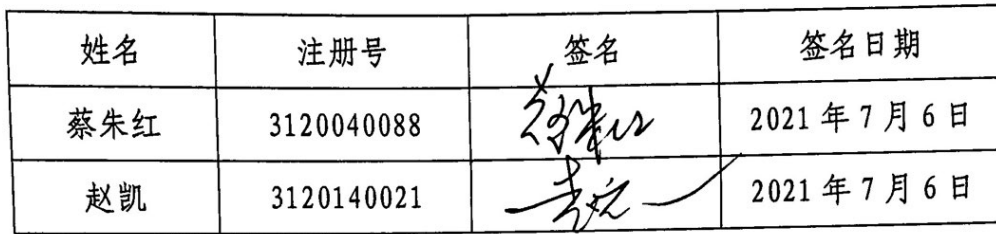 姓名 注册号 签名 签名日期
蔡朱红 3120040088 蔡朱红 2021年7月6日
赵凯 3120140021 2021年7月6日